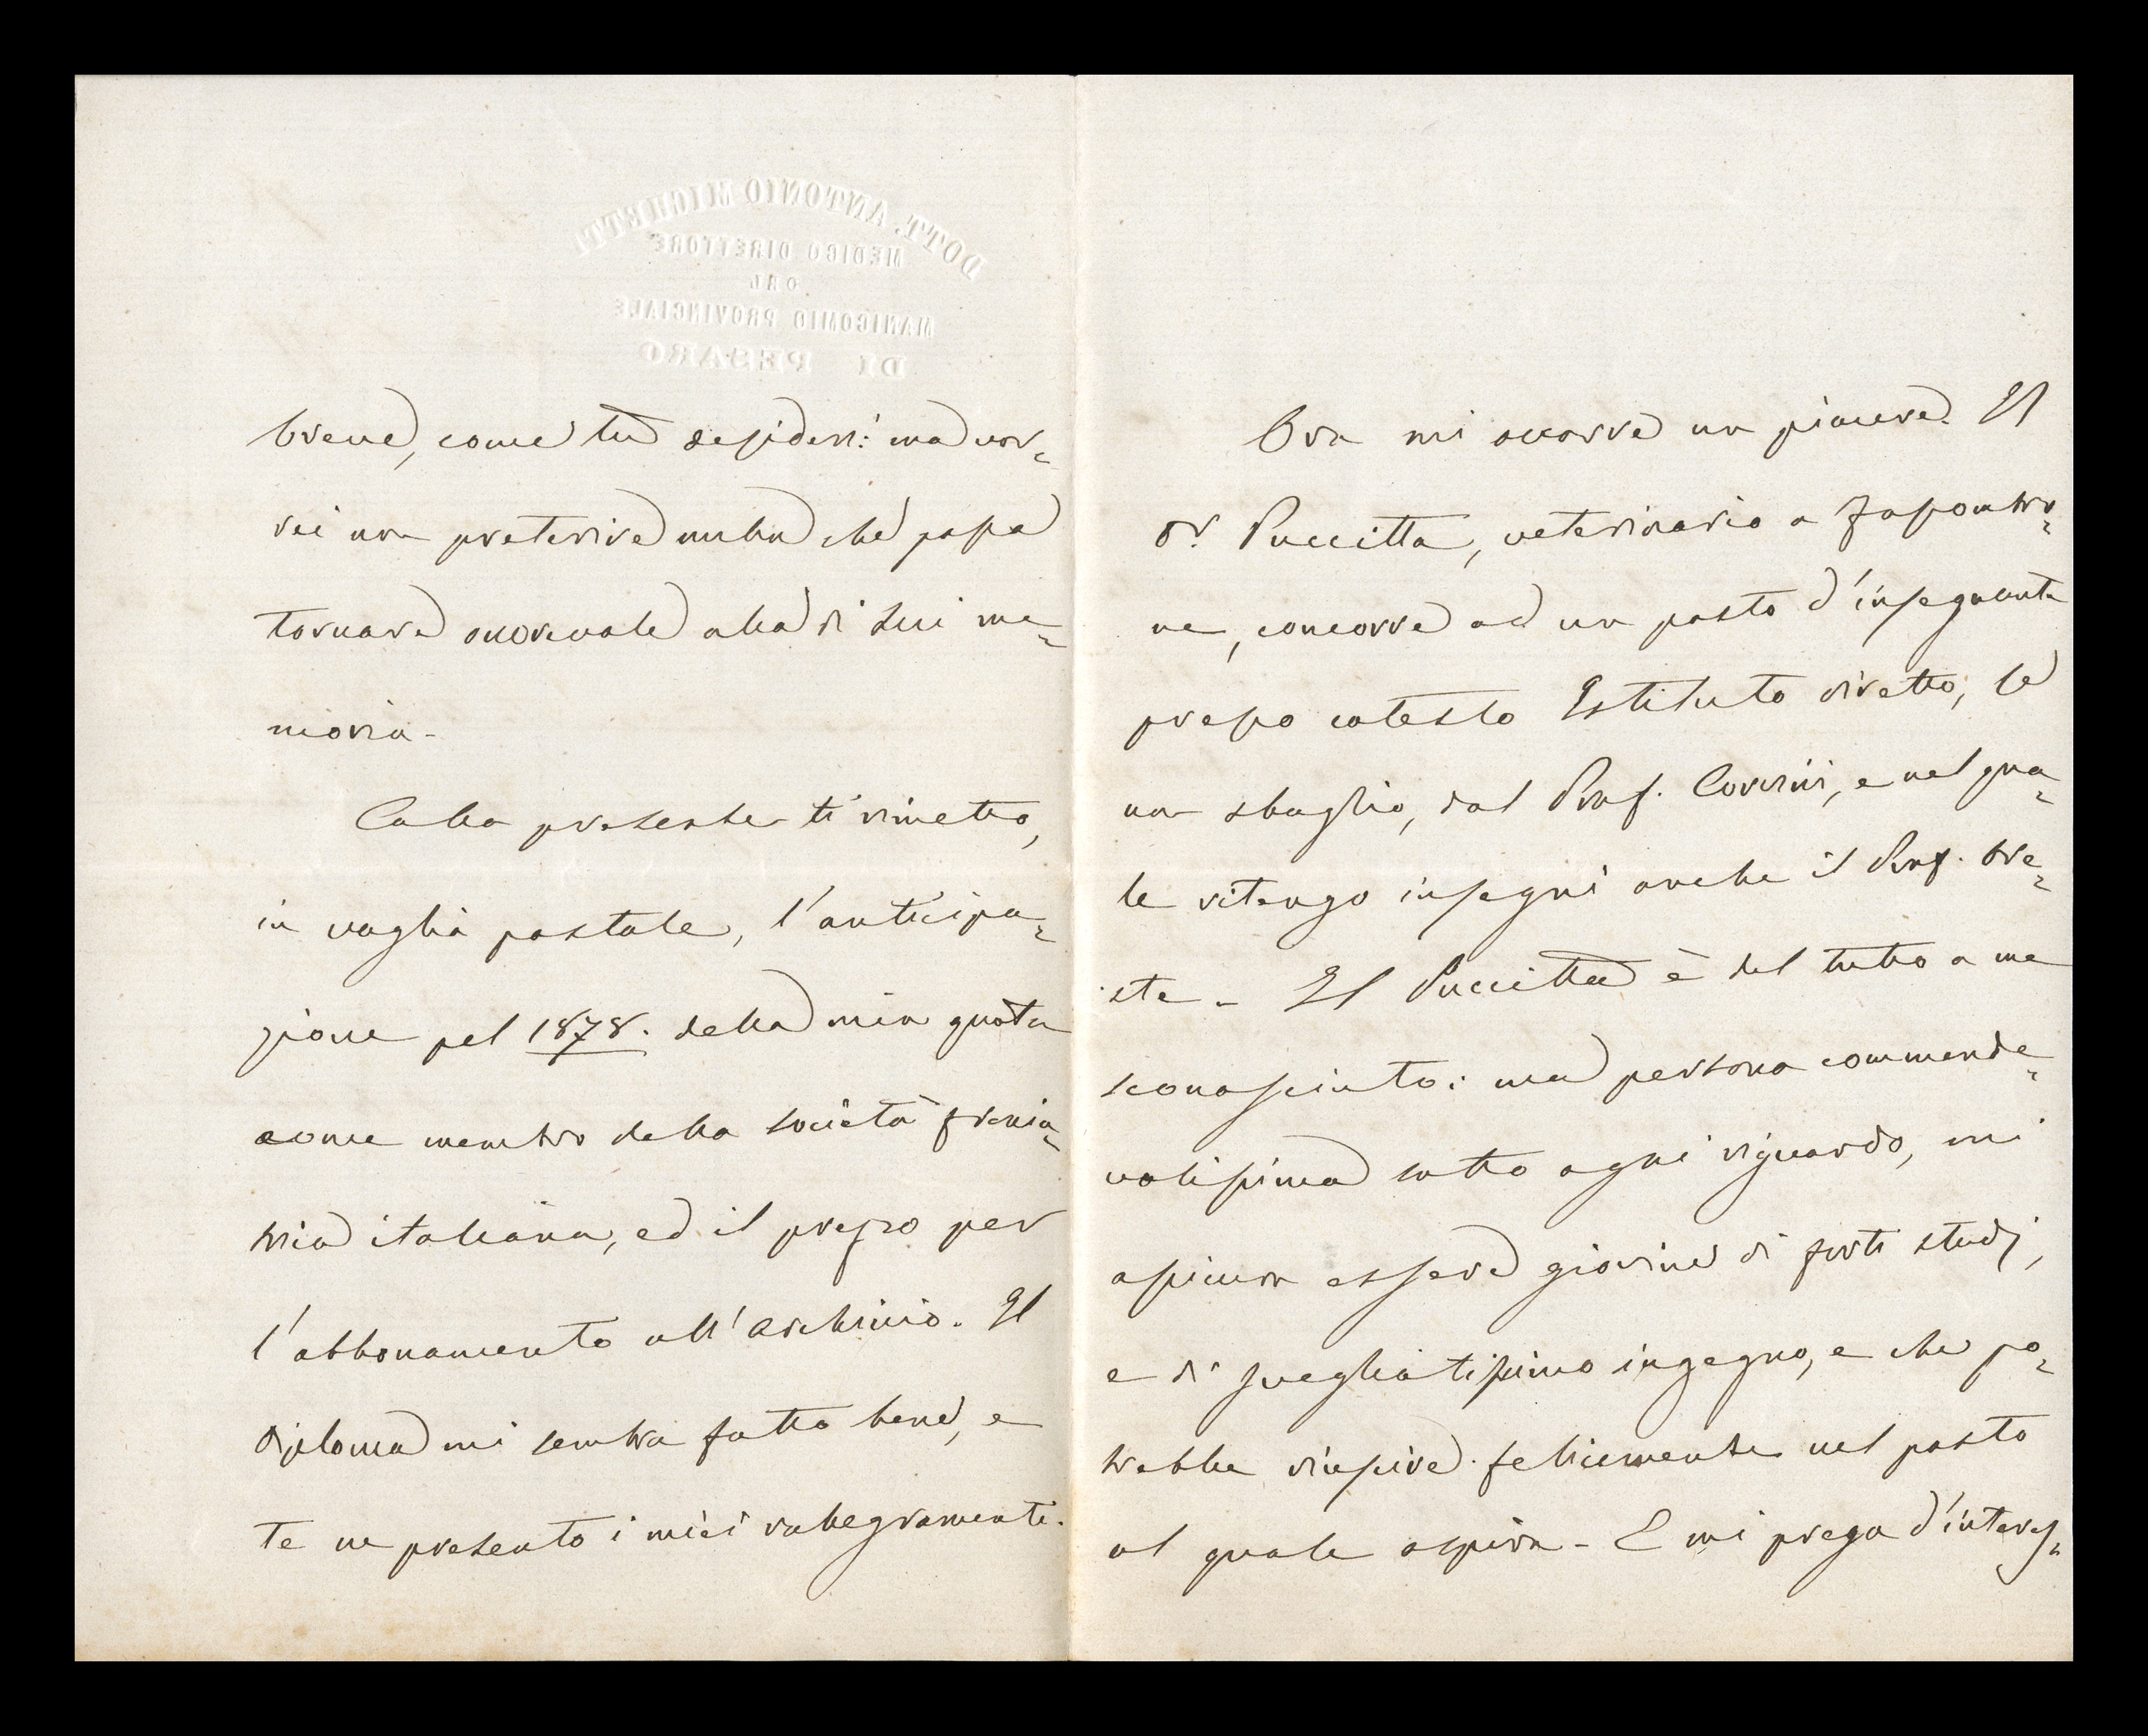 DOTT. ANTONIO MICHETTI
MEDICO DIRETTORE
DEL
MANICOMIO PROVINCIALE
DI PESARO
breve, come tu desideri: ma vor=
rei non preterire nulla che possa
tornare onorevole alla di lui me=
moria-
Colla presente ti rimetto,
in vaglia postale, l'anticipa=
zione pel 1878. della mia quota
come membro della società frenia=
tria italiana, ed il prezzo per
l'abbonamento all'Archivio. Il
diploma mi sembra fatto bene, e
te ne presento i miei rallegramenti.
Ora mi occorre un piacere. Il
Dr. Puccitta, veterinario a Fossombro=
ne, concorre ad un posto d'insegnante
presso cotesto Istituto diretto, se
non sbaglio, dal Prof. Corvini, e nel qua=
le ritengo insegni anche il Prof. Ore=
ste - Il Puccitta è del tutto a me
sconosciuto: ma persona commende=
volissima sotto ogni riguardo, mi
assicura essere giovine di forti studj,
e di svegliatissimo ingegno, e che po=
trebbe riuscire felicemente nel posto
al quale aspira - E mi prega d'interes=